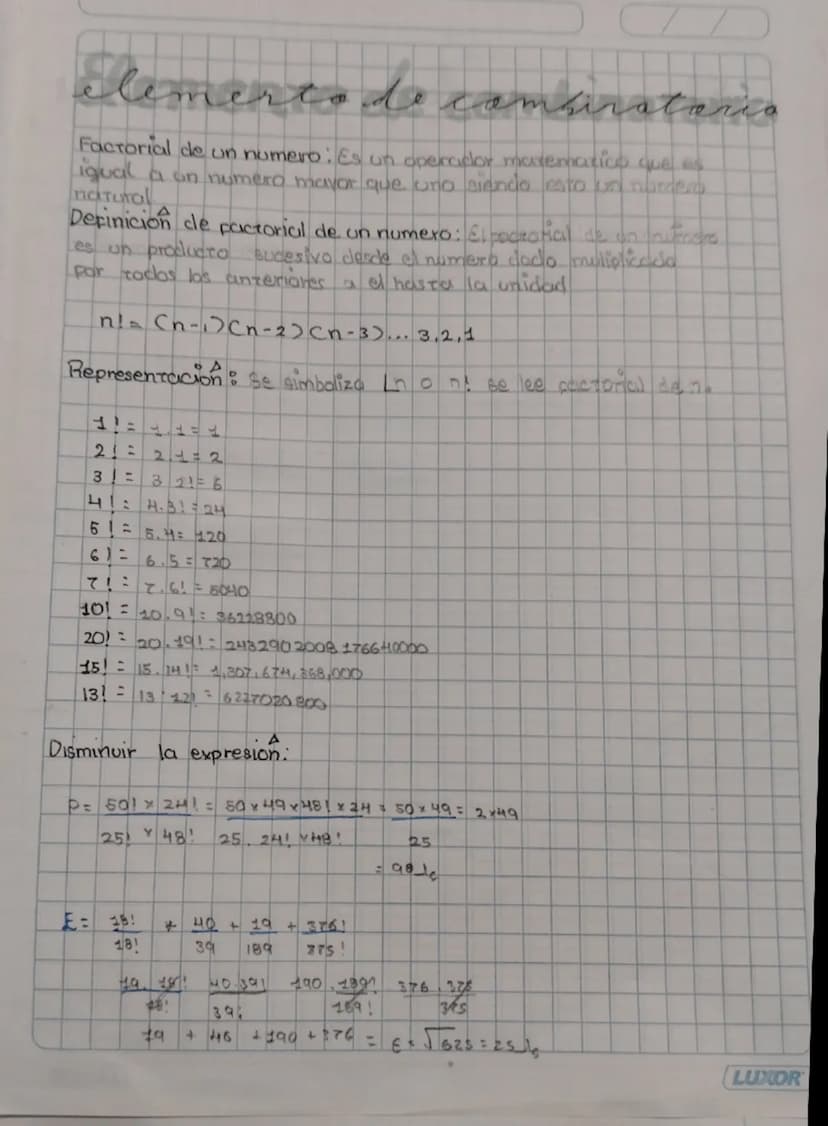 elemento de combinatoria
Factorial de un numero: Es un operador matematico que es
igual a un numero mayor que uno siendo esto un numero
natural
Definición de factorial de un numero: El factorial de un numero
es un producto sucesivo desde el numero dado multiplicado
por todos los anteriores a el hasta la unidad
n! = (n-1)(n-2)(n-3)... 3,2,1
Representación: Se simboliza Ln o n! se lee factorial de n.
1! = 1.1 = 1
2! = 2.1 = 2
3! = 3 2! = 6
4! = 4.3! = 24
5! = 5.4 = 120
6! = 6.5 = 720
7! = 7.6! = 5040
10! = 10.9! = 36228800
20! = 20.19! = 2432902008176640000
15! = 15.14! = 1,307,674,368,000
13! = 13.12! = 6227020800
Disminuir la expresión:
P = 50! x 24! = 50 x 49 x 48! x 24 = 50 x 49 = 2 x 49
25! x 48! 25. 24! x 48! 25
= 98
E = 40 + 19 + 376!
18! 39 189 375!
19. 18! 40.39! 190.189! 376.375
18! 39! 189! 375
19 + 40 + 190 + 376 = E = √625 = 25
LUXOR